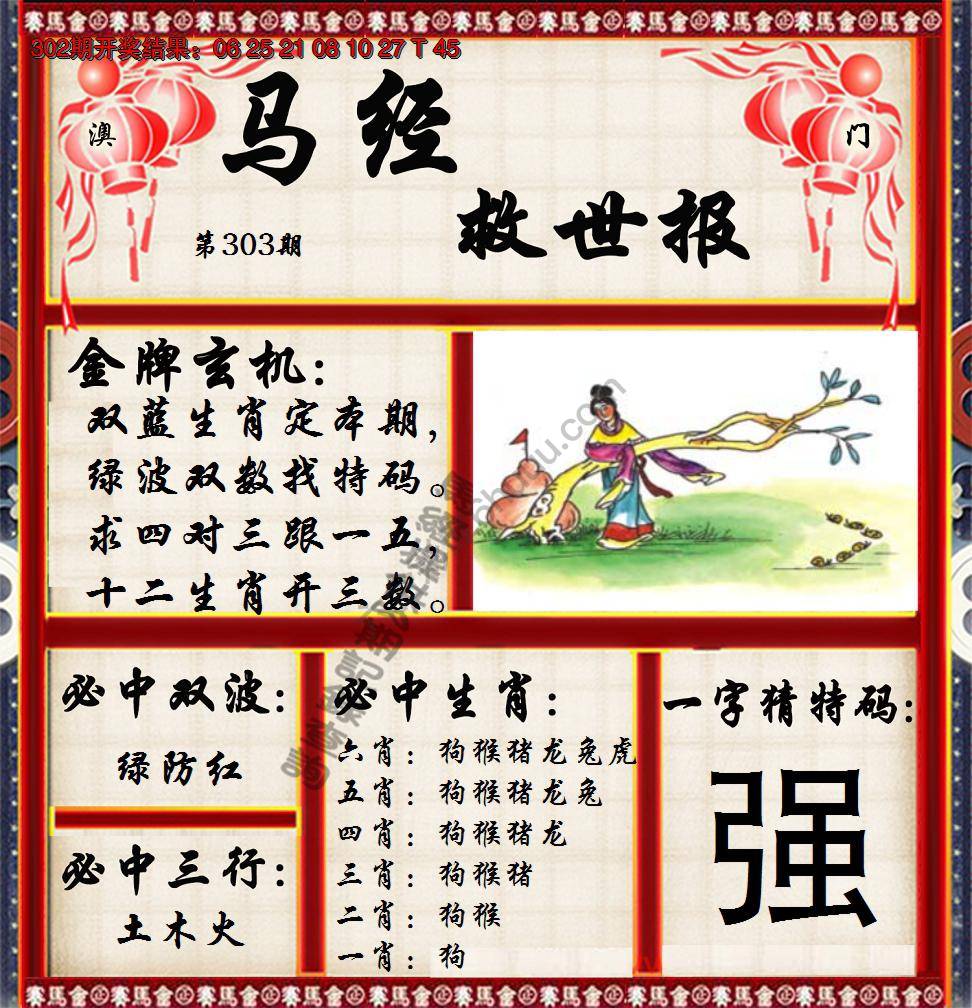 302期开奖结果：06 25 21 08 10 27 T 45
澳
门
马经
救世报
第303期
金牌玄机：
双蓝生肖定本期，
绿波双数找特码。
求四对三跟一五，
十二生肖开三数。
必中双波：
绿防红
必中三行：
土木火
必中生肖：
六肖：狗猴猪龙兔虎
五肖：狗猴猪龙兔
四肖：狗猴猪龙
三肖：狗猴猪
二肖：狗猴
一肖：狗
一字猜特码：
强